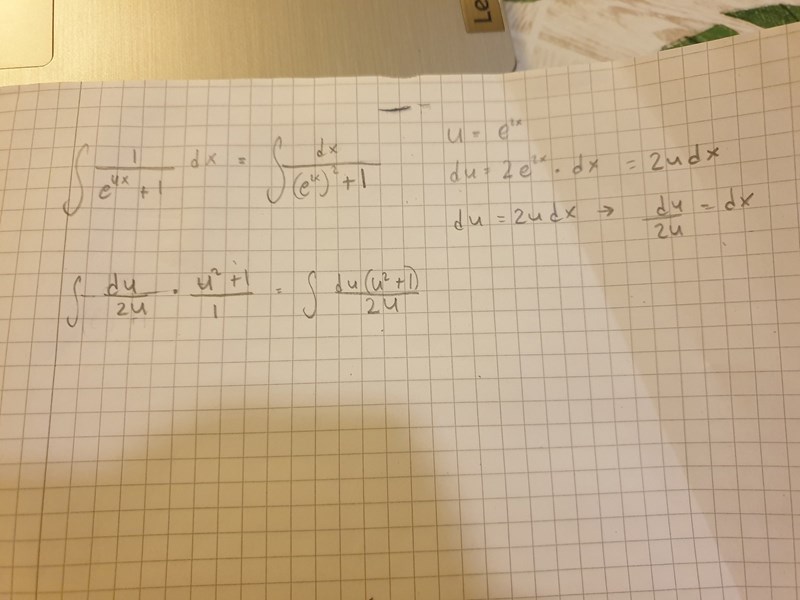 Le
∫ 1/(e^{4x} + 1) dx = ∫ dx/((e^{2x})^2 + 1)
u = e^{2x}
du = 2e^{2x} · dx = 2u dx
du = 2u dx → du/2u = dx
∫ du/2u · (u^2 + 1)/1 = ∫ du(u^2 + 1)/2u